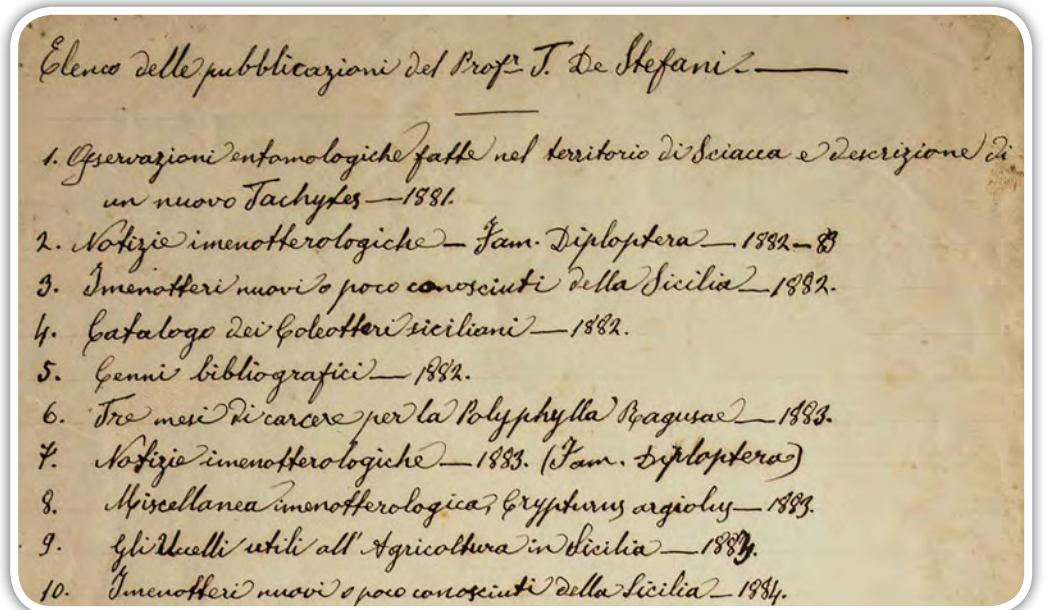 Elenco delle pubblicazioni del Profr. T. De Stefani.
1. Osservazioni entomologiche fatte nel territorio di Sciacca e descrizione di
un nuovo Tachytes — 1881.
2. Notizie imenotterologiche — Fam. Diploptera — 1882-83
3. Imenotteri nuovi o poco conosciuti della Sicilia — 1882.
4. Catalogo dei Coleotteri siciliani — 1882.
5. Cenni bibliografici — 1882.
6. Tre mesi di carcere per la Polyphylla Ragusae — 1883.
7. Notizie imenotterologiche — 1883. (Fam. Diploptera)
8. Miscellanea imenotterologica, Crypturus argiolus — 1883.
9. Gli Uccelli utili all'Agricoltura in Sicilia —
10. Imenotteri nuovi o poco conosciuti della Sicilia — 1884.